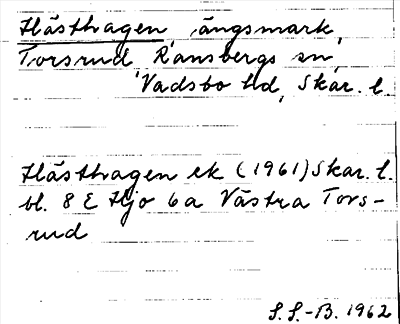 Hästhagen, ängsmark,
Torsrud, Ransbergs sn,
Vadsbo hd, Skar. l.
Hästhagen ek (1961) Skar. l.
bl. 8 E Hjo 6a Västra Tors-
rud
S.S.-B. 1962